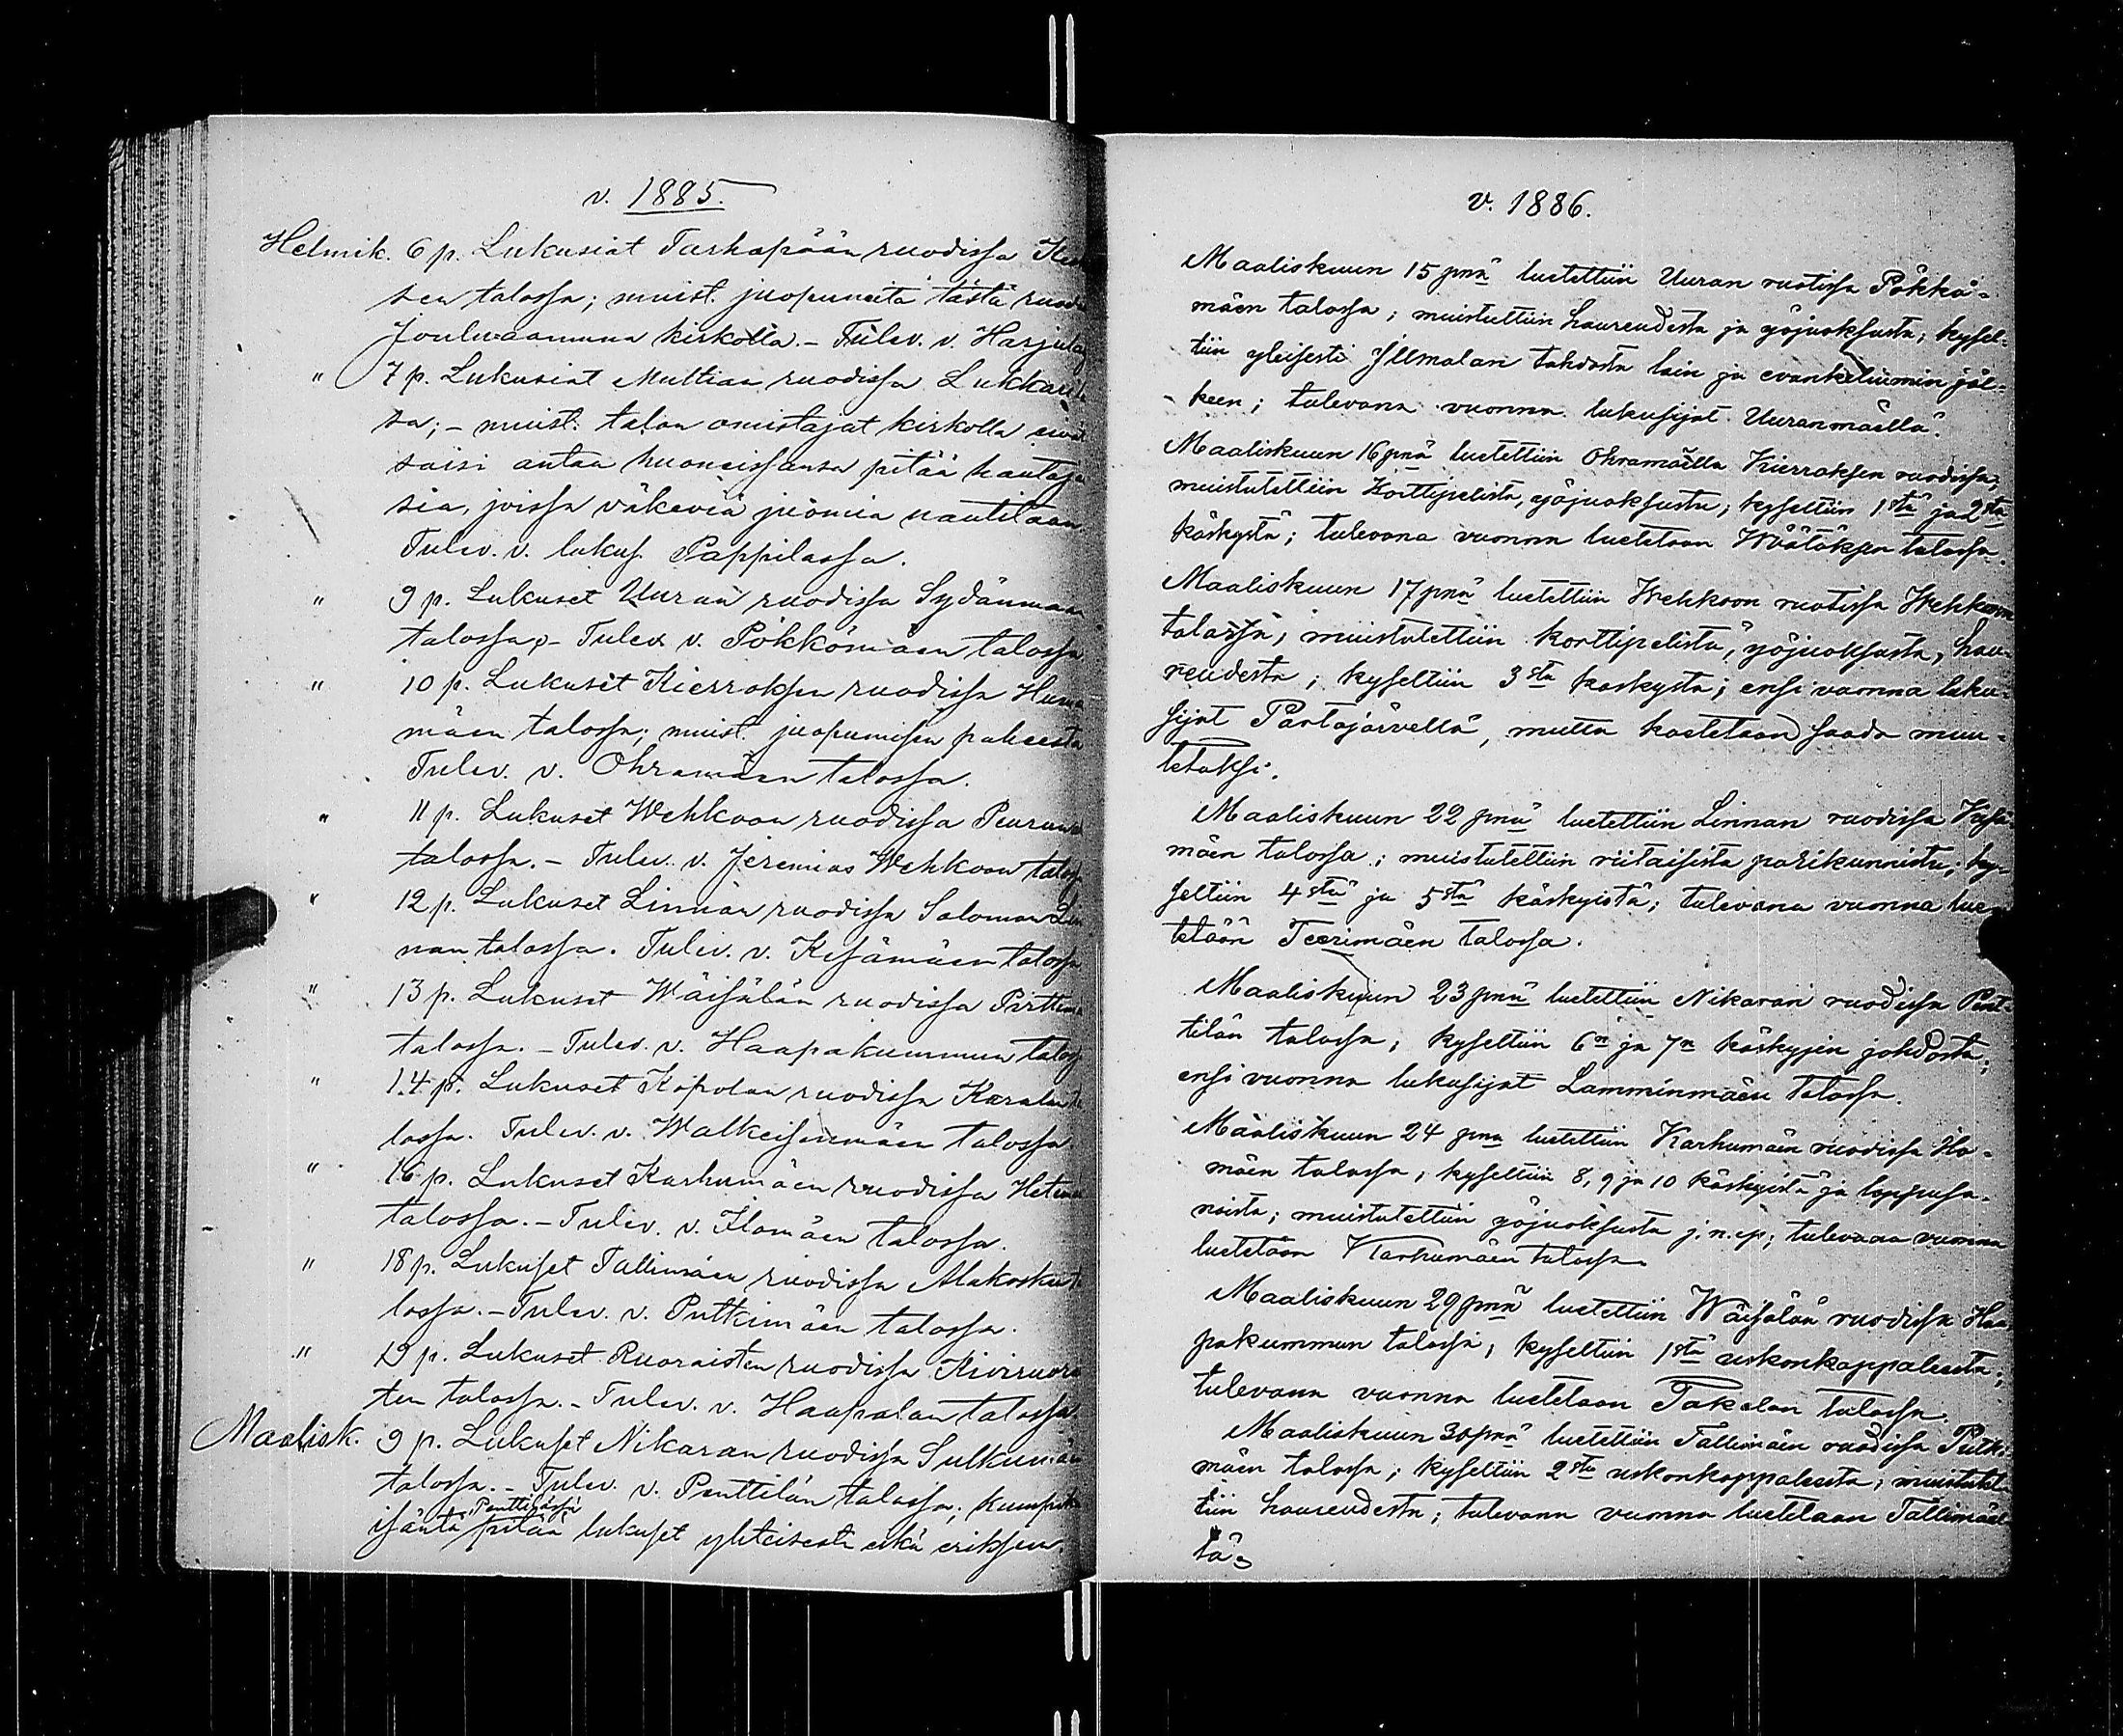 v. 1885.
Helmik. 6 p. Lukusiat Tarhapään ruodissa
sen talossa; muist. juopuneita tästä
Jouluaamuna kirkolla. - Tulev. v.
" 7 p. Lukusiat Multian ruodissa
sa; - muist. talon omistajat kirkolla eivät
saisi antaa huoneissansa pitää
sia, joissa väkeviä juomia nautitaan.
Tulev. v. lukus. Pappilassa.
" 9 p. Lukuset Uuran ruodissa Sydänmaan
talossa, - Tulev. v. Pökkömäen talossa
" 10 p. Lukuset Kierroksen ruodissa
mäen talossa; muist. juopumisen paheesta
Tulev. v. Ohramäen talossa.
" 11 p. Lukuset Wehkoon ruodissa
talossa. - Tulev. v. Jeremias Wehkoon
" 12 p. Lukuset Linnan ruodissa Salomon
nan talossa. Tulev. v. Kesämäen talossa
" 13 p. Lukuset Wäisälän ruodissa
talossa. - Tulev. v. Haapakummun
" 14 p. Lukuset Kopolan ruodissa
lossa. Tulev. v. Walkeisenmäen talossa
" 16 p. Lukuset Karhumäen ruodissa
talossa. - Tulev. v. Ilomäen talossa.
" 18 p. Lukuset Tallimäen ruodissa
lossa. - Tulev. v. Putkimäen talossa.
" 19 p. Lukuset Ruoraisten ruodissa
ten talossa. - Tulev. v. Haapalan talossa
Maalisk. 9 p. Lukuset Nikaran ruodissa
talossa. - Tulev. v. Penttilän talossa;
isäntä Penttilässä pitää lukuset yhteisesti eikä eriksen.
v. 1886.
Maaliskuun 15 pnä luetettiin Uuran ruotissa Pökkö-
mäen talossa; muistuttiin haureudesta ja yöjuoksusta; kysel-
tiin yleisesti Jumalan tahdosta lain ja evankeliumin jäl-
keen; tulevana vuonna lukusijat Uuranmäellä.
Maaliskuun 16 pnä luetettiin Ohramäellä Kierroksen ruodissa;
muistutettiin Korttipelistä, yöjuoksusta; kyseltiin 1stä ja 2sta
käskystä; tulevana vuonna luetetaan Wäätäksen talossa.
Maaliskuun 17 pnä luetettiin Wehkoon ruotissa Wehkoon
talossa; muistutettiin korttipelistä, yöjuoksusta, hau-
reudesta; kyseltiin 3sta käskystä; ensi vuonna luku-
sijat Pärtajärvellä, mutta koetetaan saada muu-
tetuksi.
Maaliskuun 22 pnä luetettiin Linnan ruodissa
mäen talossa; muistutettiin riitaisista parikunnista; ky-
seltiin 4stä ja 5stä käskyistä; tulevana vuonna lue-
tetään Teerimäen talossa.
Maaliskuun 23 pnä luetettiin Nikaran ruodissa Pent-
tilän talossa; kyseltiin 6n ja 7n käskyjen johdosta;
ensi vuonna lukusijat Lamminmäen talossa.
Maaliskuun 24 pnä luetettiin Karhumäen ruodissa Ilo-
mäen talossa; kyseltiin 8, 9 ja 10 käskyistä ja loppusa-
noista; muistutettiin yöjuoksusta j.n.ep; tulevana vuonna
luetetaan Karhumäen talossa
Maaliskuun 29 pnä luetettiin Wäisälän ruodissa Haa-
pakummun talossa; kyseltiin 1stä uskonkappaleesta;
tulevana vuonna luetetaan Takalan talossa.
Maaliskuun 30 pnä luetettiin Tallimäen ruodissa Putki-
mäen talossa; kyseltiin 2sta uskonkappaleesta; muistutet-
tiin haureudesta; tulevana vuonna luetetaan Tallimäel-
lä.